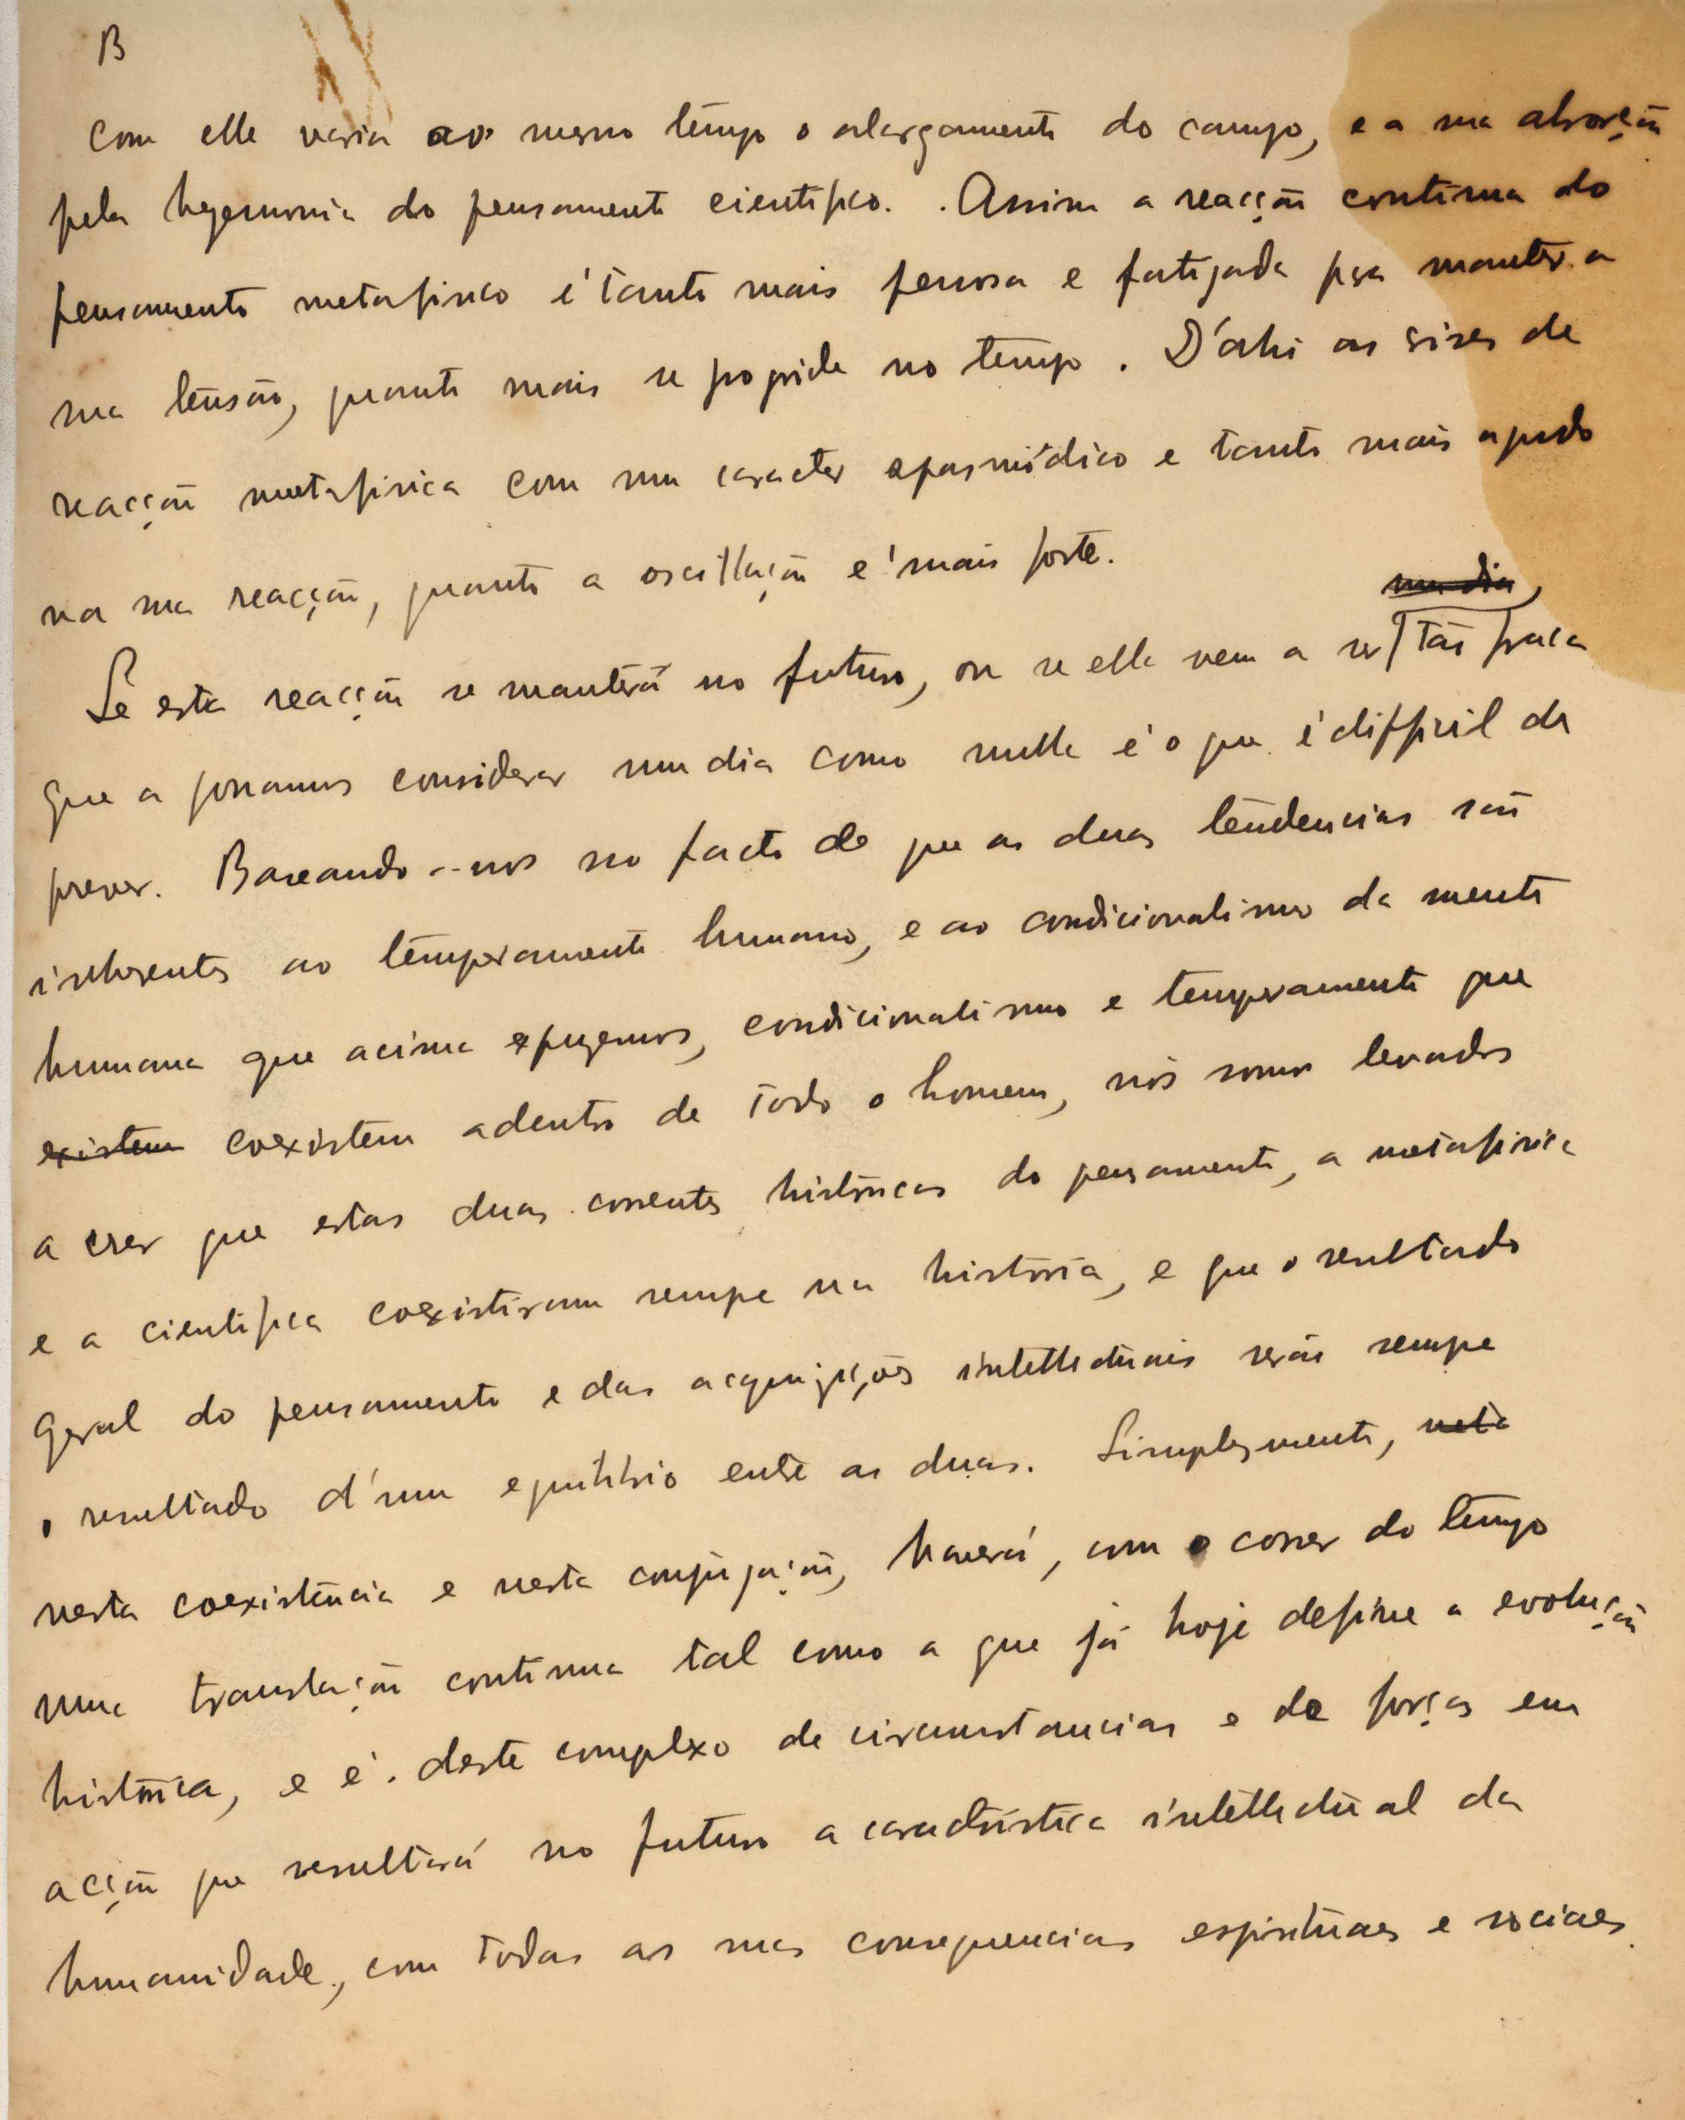 B
Com elle varia ao mesmo tempo o alargamento do campo, e a sua absorção
pela hegemonia do pensamento cientifico. Assim a reacção continua do
pensamento metafisico é tanto mais penosa e fatigada para manter a
sua tensão, quanto mais se progride no tempo. D'ahi as crises de
reacção metafisica com um caracter espasmódico e tanto mais agudo
na sua reacção, quanto a oscillação é mais forte.
um dia
Se esta reacção se manterá no futuro, ou se ella vem a ser tão fraca
que a possamos considerar um dia como nulla é o que é difficil de
prever. Baseando-nos no facto de que as duas tendencias são
inherentes ao temperamento humano, e ao condicionalismo da mente
humana que acima expuzemos, condicionalismo e temperamento que
existem coexistem adentro de todo o homem, nós somos levados
a crer que estas duas correntes históricas do pensamento, a metafisica
e a cientifica coexistiram sempre na história, e que o resultado
geral do pensamento e das acquizições intellectuais serão sempre
o resultado d'um equilibrio entre as duas. Simplesmente,
nesta coexistência e nesta conjugação, haverá, com o correr do tempo
uma translação continua tal como a que já hoje define a evolução
histórica, e é deste complexo de circumstancias e de forças em
acção que resultará no futuro a caracteristica intellectual da
humanidade, com todas as suas consequencias espirituaes e sociaes.